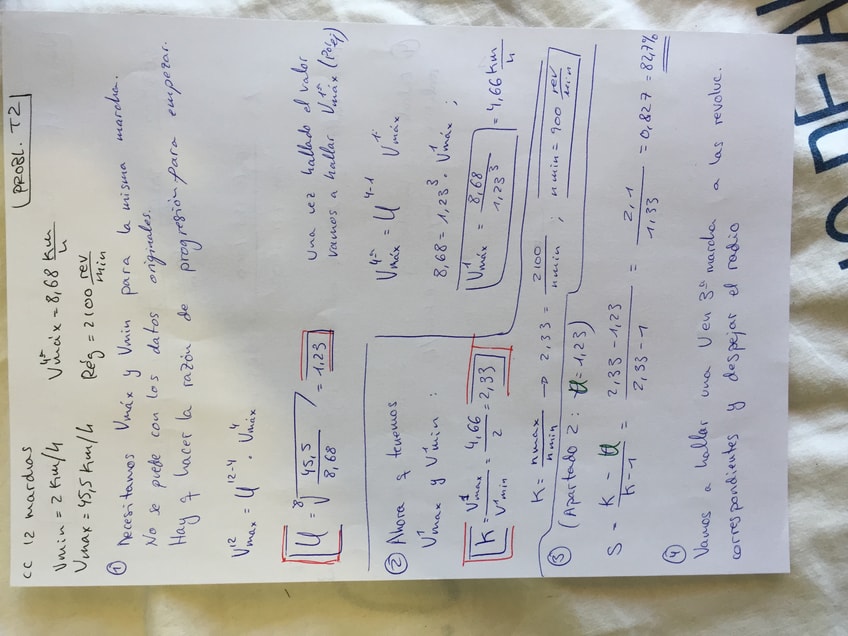 PROBL. T2
CC 12 marchas
Vmin = 2 Km/h V⁴ªmáx = 8,68 Km/h
Vmax = 45,5 Km/h Rég = 2100 rev/min
① Necesitamos Vmáx y Vmin para la misma marcha.
No se puede con los datos originales.
Hay q hacer la razón de progresión para empezar.
V¹²max = U¹²⁻⁴ · V⁴máx
U = ⁸√(45,5/8,68) = 1,23
Una vez hallado el valor
vamos a hallar V¹ªmáx (por ej)
② Ahora q tenemos
V¹max y V¹min :
K = V¹max/V¹min = 4,66/2 = 2,33
V⁴ªmáx = U⁴⁻¹ V¹máx
8,68 = 1,23³ · V¹máx ;
V¹máx = 8,68/1,23³ = 4,66 Km/h
K = nmax/nmin → 2,33 = 2100/nmin ; nmin = 900 rev/min
③ (Apartado 2: U = 1,23)
S = K - U/K - 1 = 2,33 - 1,23/2,33 - 1 = 2,1/1,33 = 0,827 = 82,7%
④ Vamos a hallar una V en 3ª marcha a las revoluc.
correspondientes y despejar el radio
O DE AV